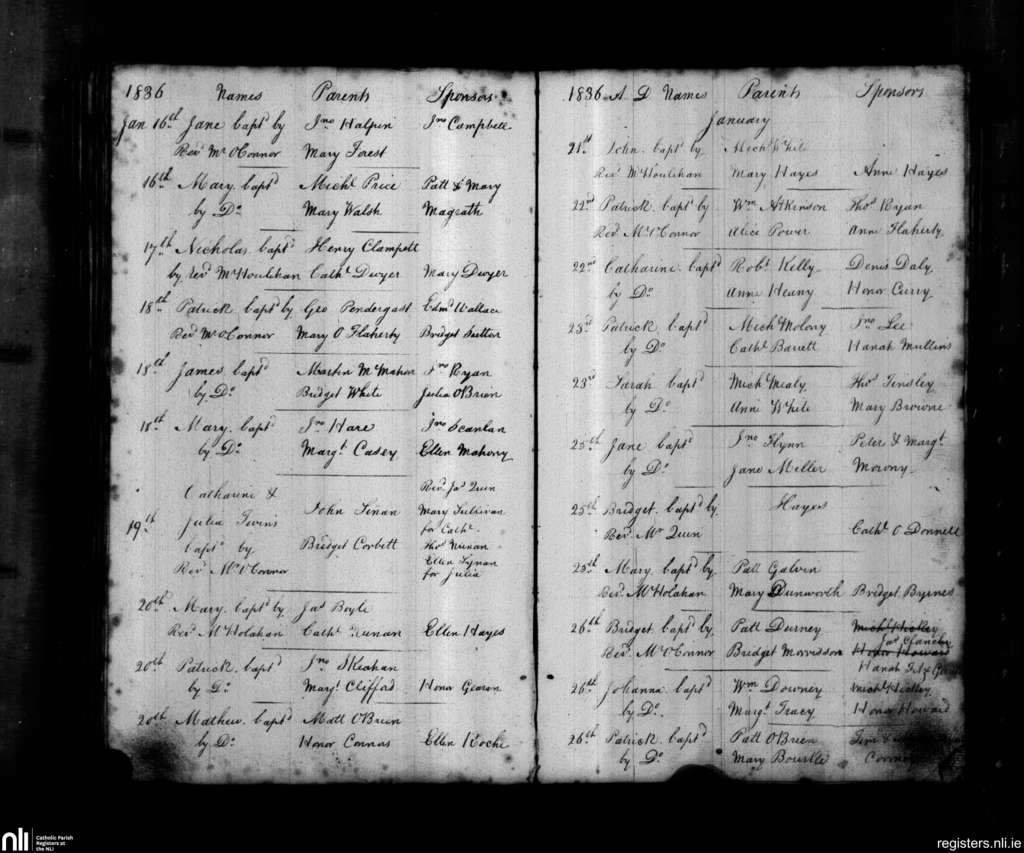 1836 Names Parents Sponsors
Jan 16th Jane bapt by Jno Halpin Jno Campbell
Revd Mr O'Connor Mary Forest
16th Mary baptd Michl Price Patt & Mary
by Do Mary Walsh Magrath
17th Nicholas baptd Henry Clampett
by Revd Mr Houlihan Cathe Dwyer Mary Dwyer
18th Patrick baptd by Geo Pendergast Edmd Wallace
Revd Mr O'Connor Mary O Flaherty Bridget
18th James baptd Martin McMahon Jno Ryan
by Do Bridget White Julia O'Brien
18th Mary baptd Jno Hare Jno Scanlan
by Do Margt Casey Ellen Mahony
19th Catharine & John Revd Jas Quin
Julia Twins Mary Sullivan
for Cathe
baptd by Bridget Corbett Thos Nunan
Revd Mr O'Connor Ellen Lynan
for Julia
20th Mary baptd by Jas Boyle
Revd Mr Holahan Cathe Nunan Ellen Hayes
20th Patrick baptd Jno Skeahan
by Do Margt Clifford Honor Gearon
20th Mathew baptd Matt O'Brien
by Do Honor Connors Ellen Roche
1836 A D Names Parents Sponsors
January
21st John baptd by Michl White
Revd Mr Houlihan Mary Hayes Anne Hayes
22nd Patrick baptd by Wm Atkinson Thos Ryan
Revd Mr O'Connor Alice Power Anne Flaherty
22nd Catharine baptd Robt Kelly Denis Daly
by Do Anne Heany Honor Curry
23rd Patrick baptd Michl Molony Jno Lee
by Do Cathe Barrett Hanah Mullins
23rd Sarah baptd Mich Mealy Thos Tinsley
by Do Anne White Mary Browne
25th Jane baptd Jno Flynn Peter & Margt
by Do Jane Miller Morony
25th Bridget baptd by Hayes
Revd Mr Quin Cathe O Donnell
25th Mary baptd by Patt Galvin
Revd Mr Holahan Mary Dunworth Bridget Byrnes
26th Bridget baptd by Patt Durney Michl Hickey
Jas Clanchy
Revd Mr O'Connor Bridget Morrisson Honor Howard
Hanah
26th Johanna baptd Wm Downey Michl Hickey
by Do Margt Tracy Honor Howard
26th Patrick baptd Patt O'Brien Tim &
by Do Mary Bourke
nli Catholic Parish
Registers at
the NLI
registers.nli.ie